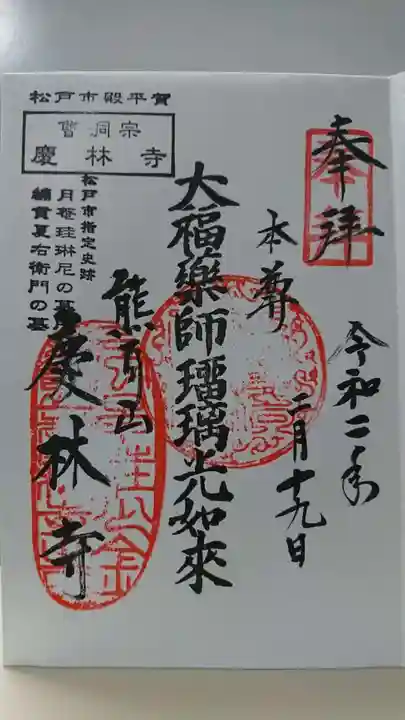 奉拝
令和二年
二月十九日
本尊
大福薬師瑠璃光如来
熊耳山
慶林寺
松戸市殿平賀
曹洞宗
慶林寺
松戸市指定史跡
月菴珪琳尼の墓
綿貫夏右衛門の墓